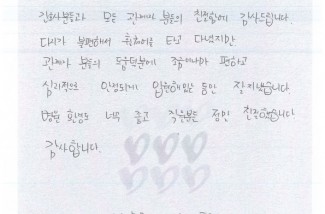 간호사분들과 모든 관계자 분들의 친절함에 감사드립니다.
다리가 불편해서 휠체어를 타고 다녔지만
관계자 분들의 도움덕분에 조금이나마 편하고
심리적으로 안정되게 입원해있는 동안 잘 지냈습니다.
병원 환경도 너무 좋고 직원분들 정말 친절합니다
감사합니다.